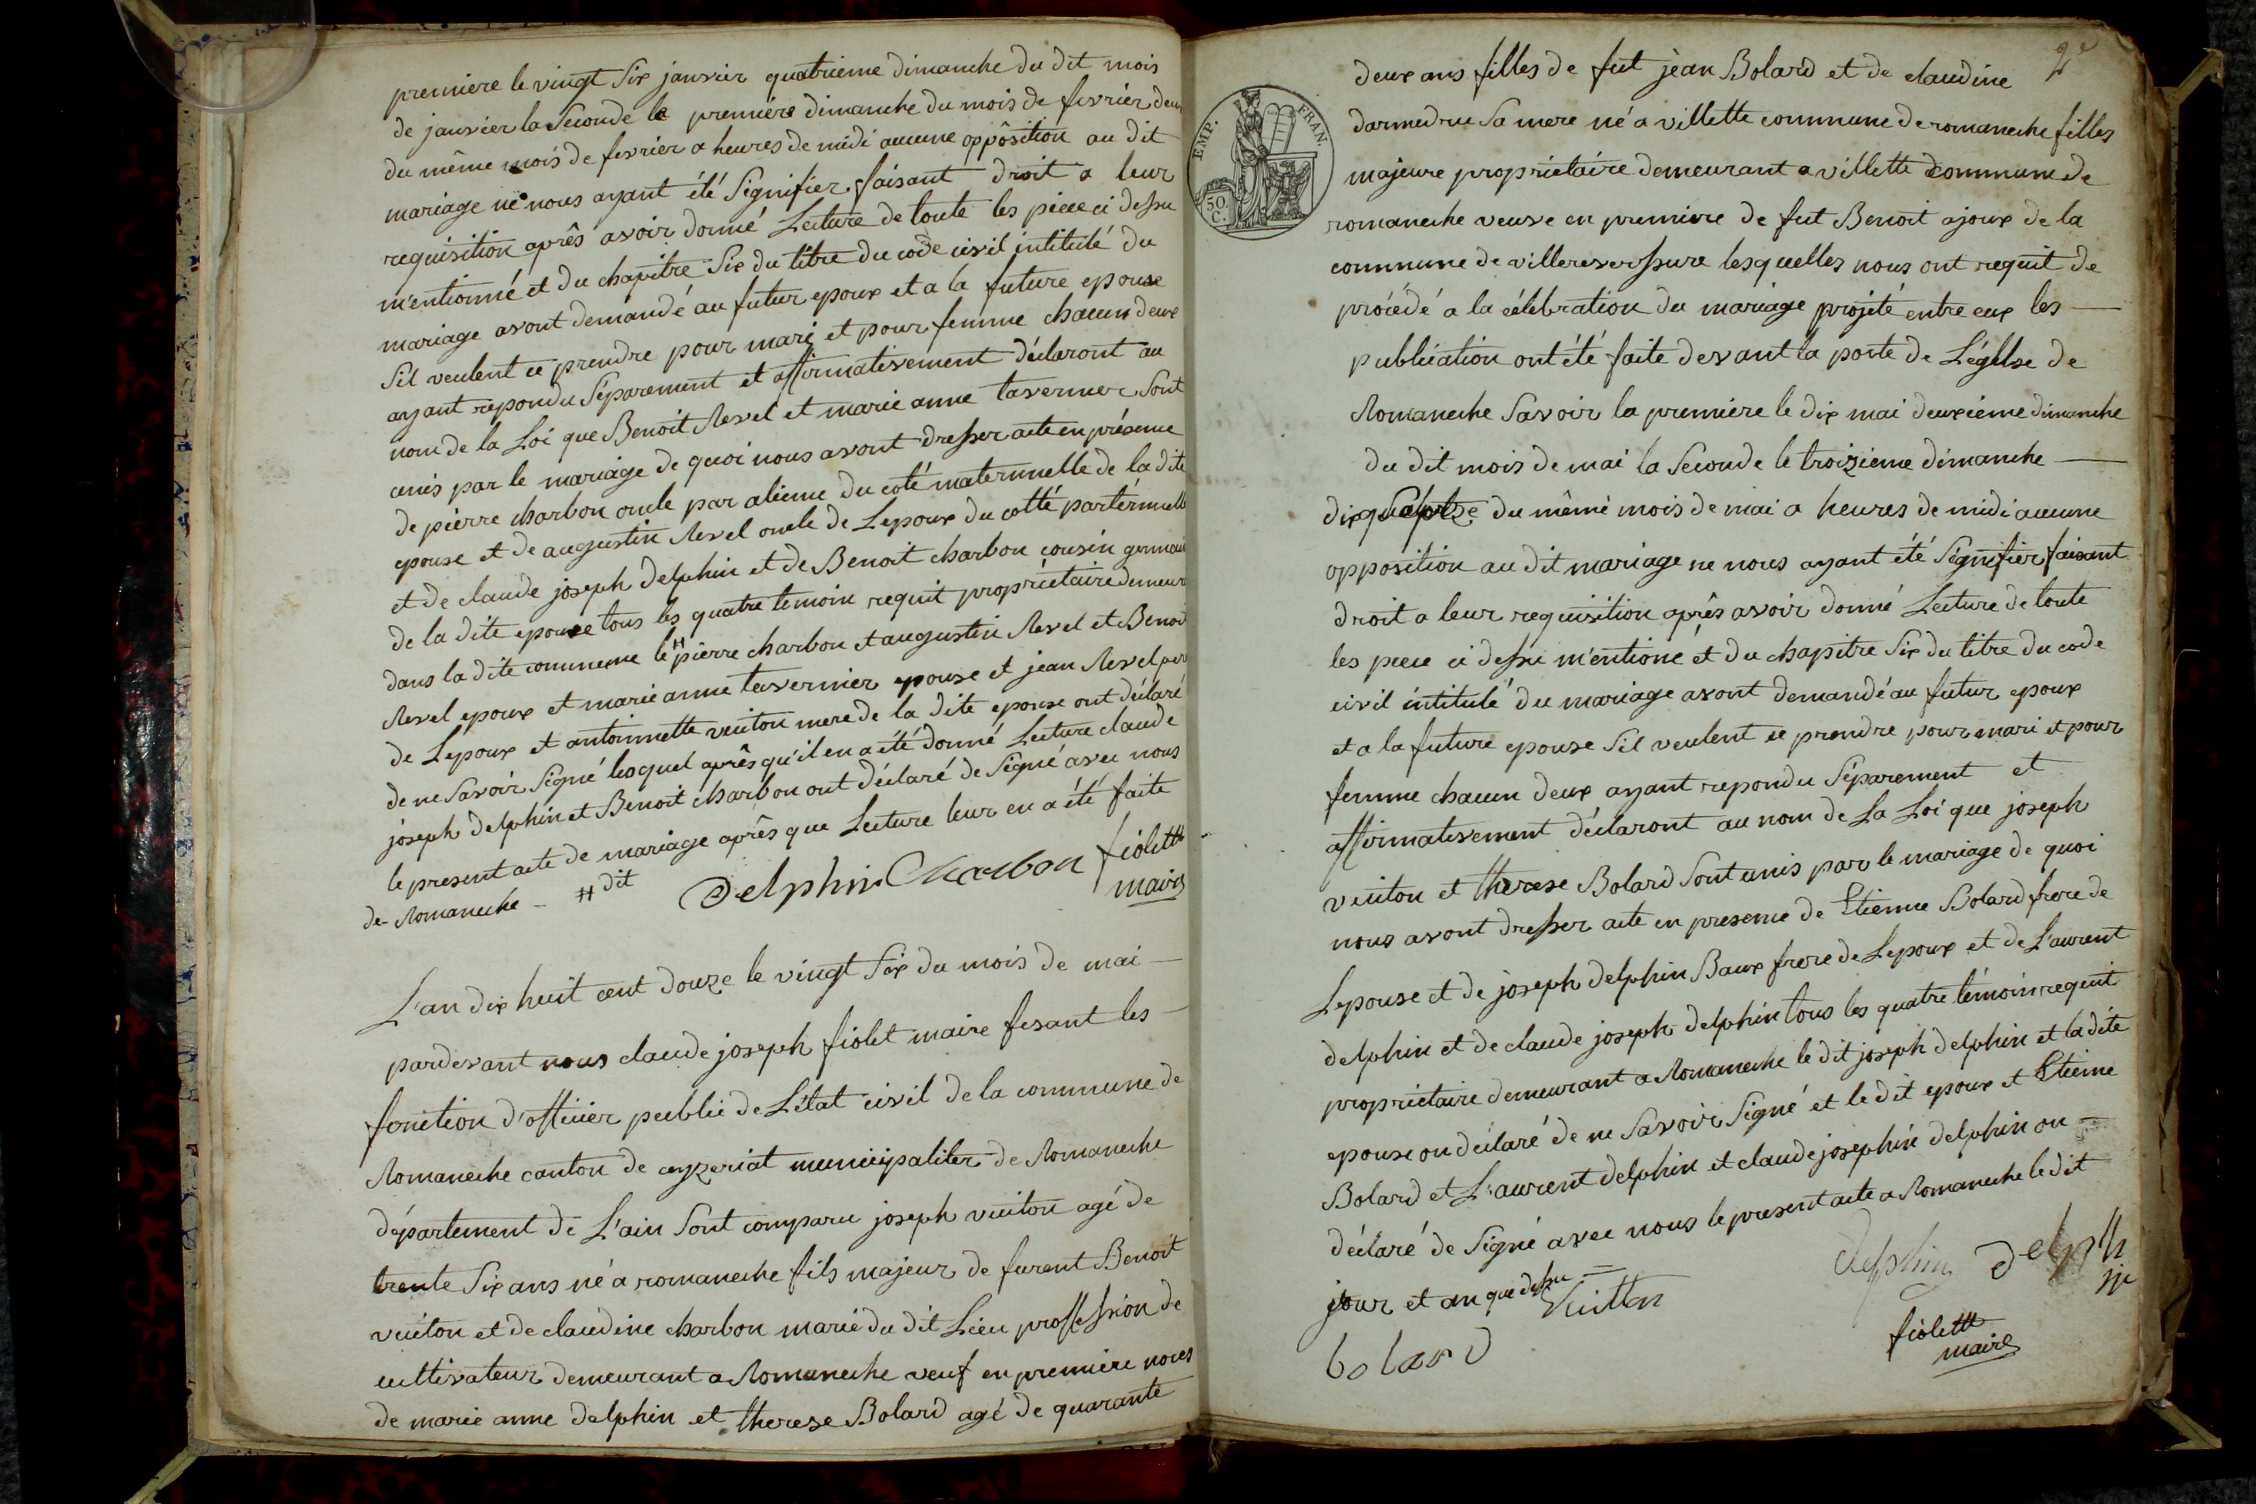 premiere le vingt Six janvier quatrieme dimanche du dit mois
de janvier la Seconde le premiere dimanche du mois de fevrier deux
du même mois de fevrier a heures de midi aucune oppôsition au dit
mariage ne nous ayant été Signifier faisant droit a leur
requisition après avoir donné Lecture de toute les piece ci dessu
m'entionné et du chapitre Six du titre du code civil intitulé du
mariage avont demandé au futur epoux et a la future epouse
Sil veulent ce prendre pour mari et pour femme chacun deux
ayant repondu Séparement et affirmativement déclaront au
nom de la Loi que Benoit Revel et marie anne tavernier Sont
unis par le mariage de quoi nous avont dresser acte en présence
de pierre charbon oncle par alience du coté maternnelle de la dite
epouse et de augustin Revel oncle de Lepoux du cotté partérnnelle
et de claude joseph delphin et de Benoit charbon cousin germain
de la dite epouse tous les quatre temoin requit propriétaire demeur
dans la dite commune le # pierre charbon et augustin Revel et Benoit
Revel epoux et marie anne tavernier epouse et jean Revel per
de Lepoux et antoinnette vuiton mere de la dite epouse ont déclaré
de ne Savoir Signé lequel après qu'il en a été donné Lecture claude
joseph delphin et Benoit charbon ont déclaré de Signé avec nous
le present acte de mariage après que Lecture leur en a été faite
de Romaneche # dit
Delphin Charbon fiolett
maire
L'an dix huit cent douze le vingt Six du mois de mai
pardevant nous claude joseph fiolet maire fesant les
fonction d'officier public de L'état civil de la commune de
Romaneche canton de ceyzeriat municipaliter de Romaneche
département de L'ain Sont comparu joseph vuiton agé de
trente Six ans né a romaneche fils majeur de furent Benoit
vuiton et de claudine charbon marié du dit Lieu proffession de
cultivateur demeurant a Romaneche veuf en premiere noces
de marie anne delphin et therese Bolard agé de quarante
2e
EMP. FRAN.
50 C.
deux ans filles de fut jèan Bolard et de claudine
darmedrue Sa mere né a villette commune de romaneche filles
majeure propriétaire demeurant a villette commune de
romaneche veuve en premiere de fut Benoit ajoux de la
commune de villereversure lesquelles nous ont requit de
procédé a la célébration du mariage projété entre eux les
publication ont été faite devant la porte de Léglise de
Romaneche Savoir la premiere le dix mai deuxième dimanche
du dit mois de mai la Seconde le troizieme dimanche
dix Sept du même mois de mai a heures de midi aucune
opposition au dit mariage ne nous ayant été Signifier faisant
droit a leur requisition après avoir donné Lecture de toute
les piece ci dessu m'entioné et du chapitre Six du titre du code
civil intitulé du mariage avont demandé au futur epoux
et a la future epouse Sil veulent ce prendre pour mari et pour
femme chacun deux ayant repondu Séparement et
affirmativement déclaront au nom de La Loi que joseph
vuiton et therese Bolard Sont unis par le mariage de quoi
nous avont dresser acte en presence de Etienne Bolard frere de
Lepouse et de joseph delphin Baux frere de Lepoux et de L'aurent
delphin et de claude joseph delphin tous les quatre témoin requit
propriétaire demeurant a Romaneche le dit joseph delphin et la dite
epouse on déclaré de ne Savoir Signé et le dit epoux et Etiene
Bolard et L'aurent delphin et claude josephin delphin on
déclaré de Signé avec nous le present acte a Romaneche le dit
jour et an que dessu
Vuitton delphin delph
bolard
fiolett
maire